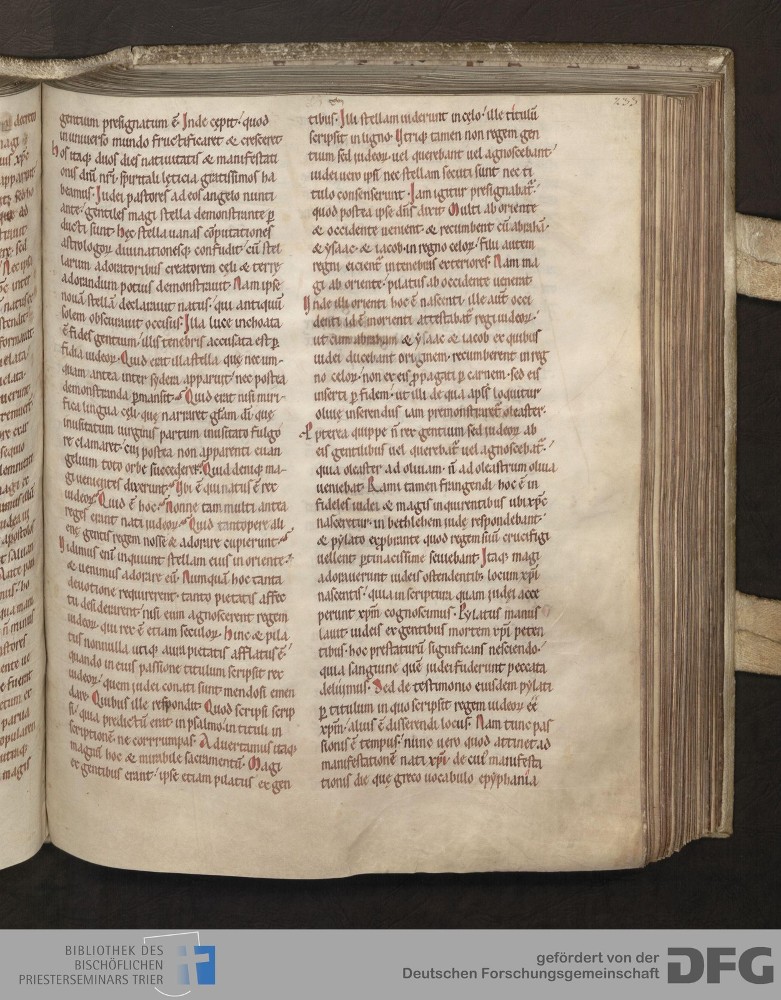 gentium presignatum ē. Inde cepit quod
in universo mundo fructificaret & cresceret.
Hos itaq; duos dies nativitatis & manifestati
onis dn̄i nr̄i spiritali leticia gratissimos ha
beamus. Iudei pastores ad eos angelo nunti
ante gentiles magi stella demonstrante ꝑ
ducti sunt. Hęc stella vanas cōputationes
astrologoꝝ divinationesq; confudit, cū stel
larum adoratoribus creatorem cęli & terrę
adorandum potius demonstravit. Nam ipse
novā stellā declaravit natus, qui antiquū
solem obscuravit occisus. Illa luce inchoata
ē fides gentium, illis tenebris accusata est ꝑ
fidia iudeoꝝ. Quid erat illa stella quę nec um-
quam antea inter sydera apparuit, nec postea
demonstranda ꝑmansit. Quid erat nisi miri-
fica lingua cęli quę narraret gl̄am dī, quę
inusitatum virginis partum inusitato fulgo
re clamaret, cui postea non apparenti euan
gelium toto orbe succederet. Quid deniq; ma-
gi venientes dixerunt. Ubi ē qui natus ē rex
iudeoꝝ. Quid ē hoc. Nonne tam multi antea
reges erant nati iudeoꝝ. Quid tantopere ali
enę gentis regem nosse & adorare cupierunt.
Vidimus enī inquiunt stellam eius in oriente
& venimus adorare eū. Numquā hoc tanta
devotione requirerent, tanto pietatis affec
tu desiderarent, nisi eum agnoscerent regem
iudeoꝝ, qui rex ē etiam seculoꝝ. Hinc & pila
tus nonnulla utiq; aura pietatis afflatus ē
quando in eius passione titulum scripsit rex
iudeoꝝ, quem iudei conati sunt mendosi emen
dare. Quibus ille respondit. Quod scripsi scrip
si, quia predictū erat in psalmo, in tituli in
scriptionē ne corrumpas. Advertamus itaq;
magnū hoc & mirabile sacramentū. Magi
ex gentibus erant, ipse etiam pilatus ex gen
233
tibus. Illi stellam viderunt in cęlo, ille titulū
scripsit in ligno. Utriq; tamen non regem gen
tium sed iudeoꝝ vel querebant vel agnoscebant.
Iudei vero ipsi nec stellam secuti sunt nec ti
tulo consenserunt. Iam igitur presignabat̄
quod postea ipse dn̄s dixit. Multi ab oriente
& occidente venient, & recumbent cū abrahā
& ysaac & iacob in regno celoꝝ, filii autem
regni eicient̄ in tenebras exteriores. Nam ma
gi ab oriente, pilatus ab occidente venerat.
Unde illi orienti hoc ē nascenti, ille aut̄ occi
denti id ē morienti attestabat̄ regi iudeoꝝ,
ut cum abraham & ysaac & iacob ex quibus
iudei ducebant originem, recumberent in reg
no celoꝝ, non ex eis ꝓpagati ꝑ carnem, sed eis
inserti ꝑ fidem, ut illi de qua apl̄s loquitur
olivę inserendus iam premonstraret̄ oleaster.
Propterea quippe n̄ rex gentium sed iudeoꝝ ab
eis gentibus vel querebat̄ vel agnoscebat̄,
quia oleaster ad olivam, n̄ ad oleastrum oliva
veniebat. Rami tamen frangendi, hoc ē in
fideles iudei & magis inquirentibus ubi xp̄c
nasceretur, in bethlehem iudę respondebant,
& pylato exprobrante quod regem suū crucifigi
vellent ꝑtinacissime sęviebant. Itaq; magi
adoraverunt iudeis ostendentib; locum xp̄i
nascentis, quia in scriptura quam iudei acce
perunt xp̄m cognoscimus. Pylatus manus
lavit, iudeis ex gentibus mortem xp̄i peten
tibus, hoc prestaturū significans nesciendo,
quia sanguine quē iudei fuderunt peccata
deluimus. Sed de testimonio eiusdem pylati
ꝑ titulum in quo scripsit regem iudeoꝝ eē
xp̄m, alius ē disserendi locus. Nam tunc pas
sionis ē tempus, nunc vero quod attinet ad
manifestationē nati xp̄i, de cui᷒ manifesta
tionis die quę greco vocabulo epyphania
BIBLIOTHEK DES
BISCHÖFLICHEN
PRIESTERSEMINARS TRIER
gefördert von der
Deutschen Forschungsgemeinschaft
DFG